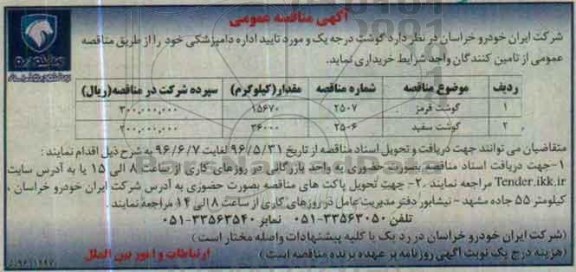 آگهی مناقصه عمومی
شرکت ایران خودرو خراسان در نظر دارد گوشت درجه یک و مورد تایید اداره دامپزشکی خود را از طریق مناقصه
عمومی از تامین کنندگان واجد شرایط خریداری نماید.
ردیف موضوع مناقصه شماره مناقصه مقدار(کیلوگرم) سپرده شرکت در مناقصه(ریال)
۱ گوشت قرمز ۲۵۰۷ ۱۵۶۷۰ ۳۰۰,۰۰۰,۰۰۰
۲ گوشت سفید ۲۵۰۶ ۳۶۰۰۰ ۲۰۰,۰۰۰,۰۰۰
متقاضیان می توانند جهت دریافت و تحویل اسناد مناقصه از تاریخ ۹۶/۵/۳۱ لغایت ۹۶/۶/۷ به شرح ذیل اقدام نمایند :
۱-جهت دریافت اسناد مناقصه بصورت حضوری به واحد بازرگانی در روزهای کاری از ساعت ۸ الی ۱۵ یا به آدرس سایت
Tender.ikk.ir مراجعه نمایند .۲- جهت تحویل پاکت های مناقصه بصورت حضوری به آدرس شرکت ایران خودرو خراسان ،
کیلومتر ۵۵ جاده مشهد - نیشابور دفتر مدیریت عامل در روزهای کاری از ساعت ۸ الی ۱۴ مراجعه نمایند .
تلفن ۳۳۵۶۳۰۵۰-۰۵۱ نمابر ۳۳۵۶۳۵۴۰-۰۵۱
(شرکت ایران خودرو خراسان در رد یک یا کلیه پیشنهادات واصله مختار است)
(هزینه درج یک نوبت آگهی روزنامه بر عهده برنده مناقصه است) ارتباطات و امور بین الملل